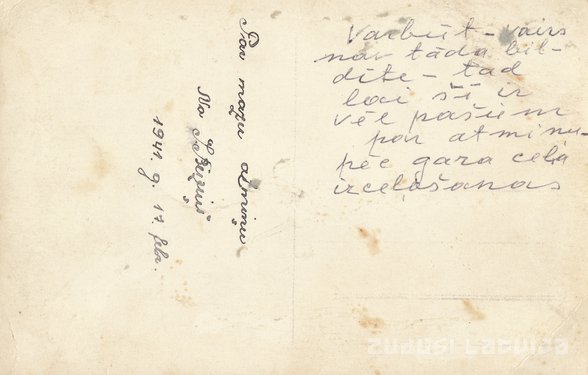 Par mazu atmiņu
No
1941. g. 17. febr.
Varbūt - vairs
nav tāda bil-
dīte - tad
lai šī ir
vēl pašiem
par atmiņu
pēc gara ceļa
izceļošanas
Zudusī Latvija